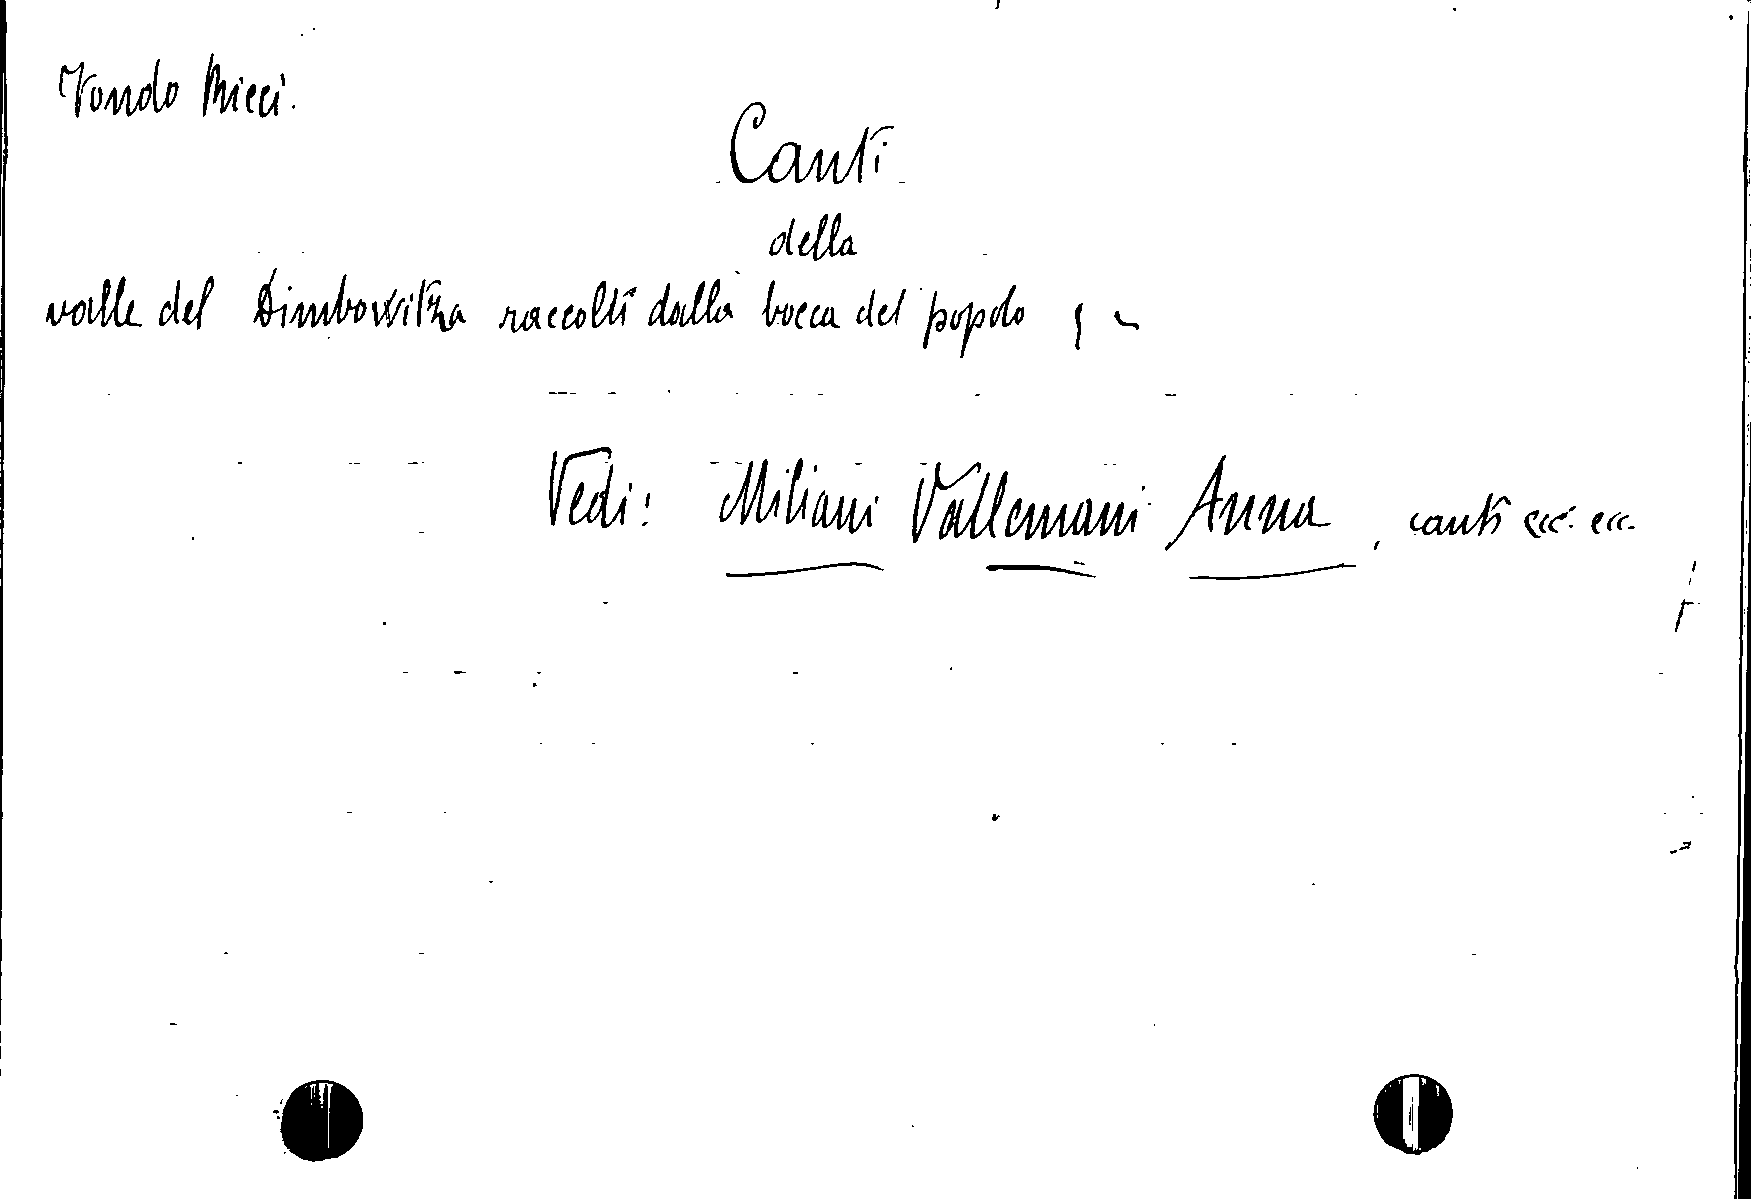 Fondo Ricci.
Canti
della
valle del Dimbowitza raccolti dalla bocca del popolo ; -
Vedi: Miliani Vallemani Anna, canti ecc. ecc.